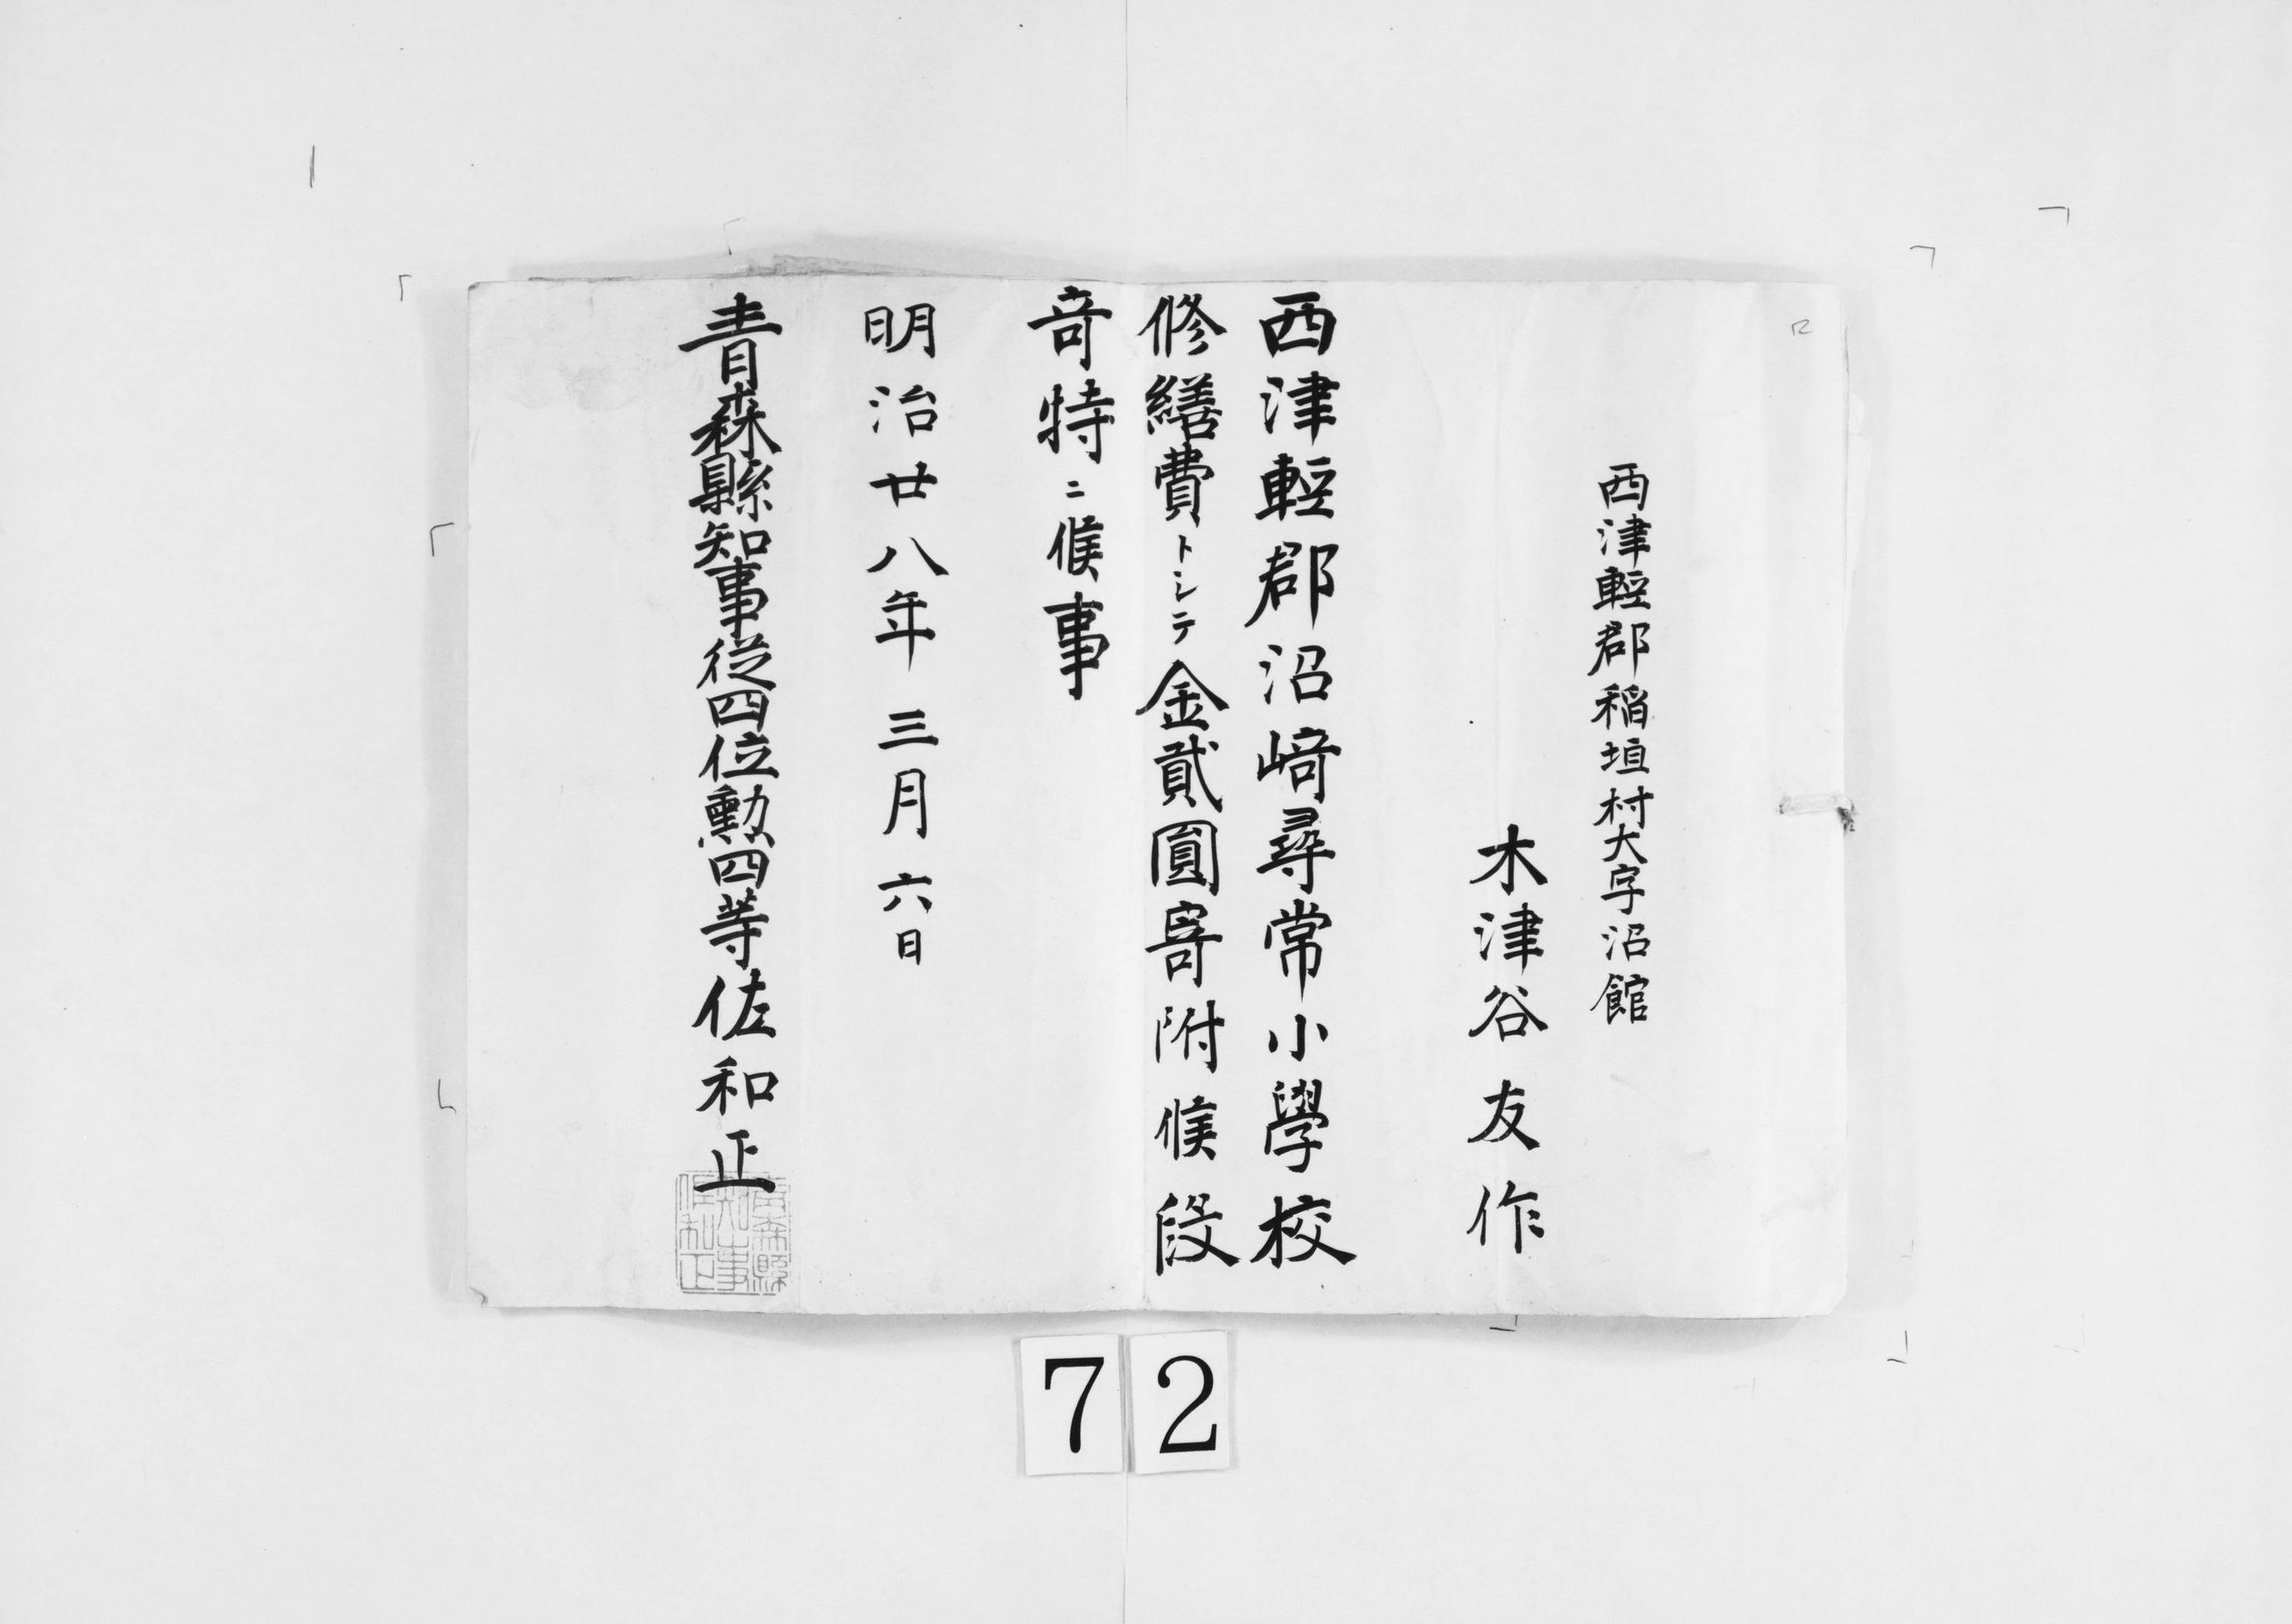 西津輕郡稲垣村大字沼館
木津谷友作
西津輕郡沼﨑尋常小學校
修繕費トシテ金貳圓寄附候段
竒特ニ候事
明治廿八年三月六日
青森縣知事従四位勲四等佐和正
青森縣
知事
佐和正
72